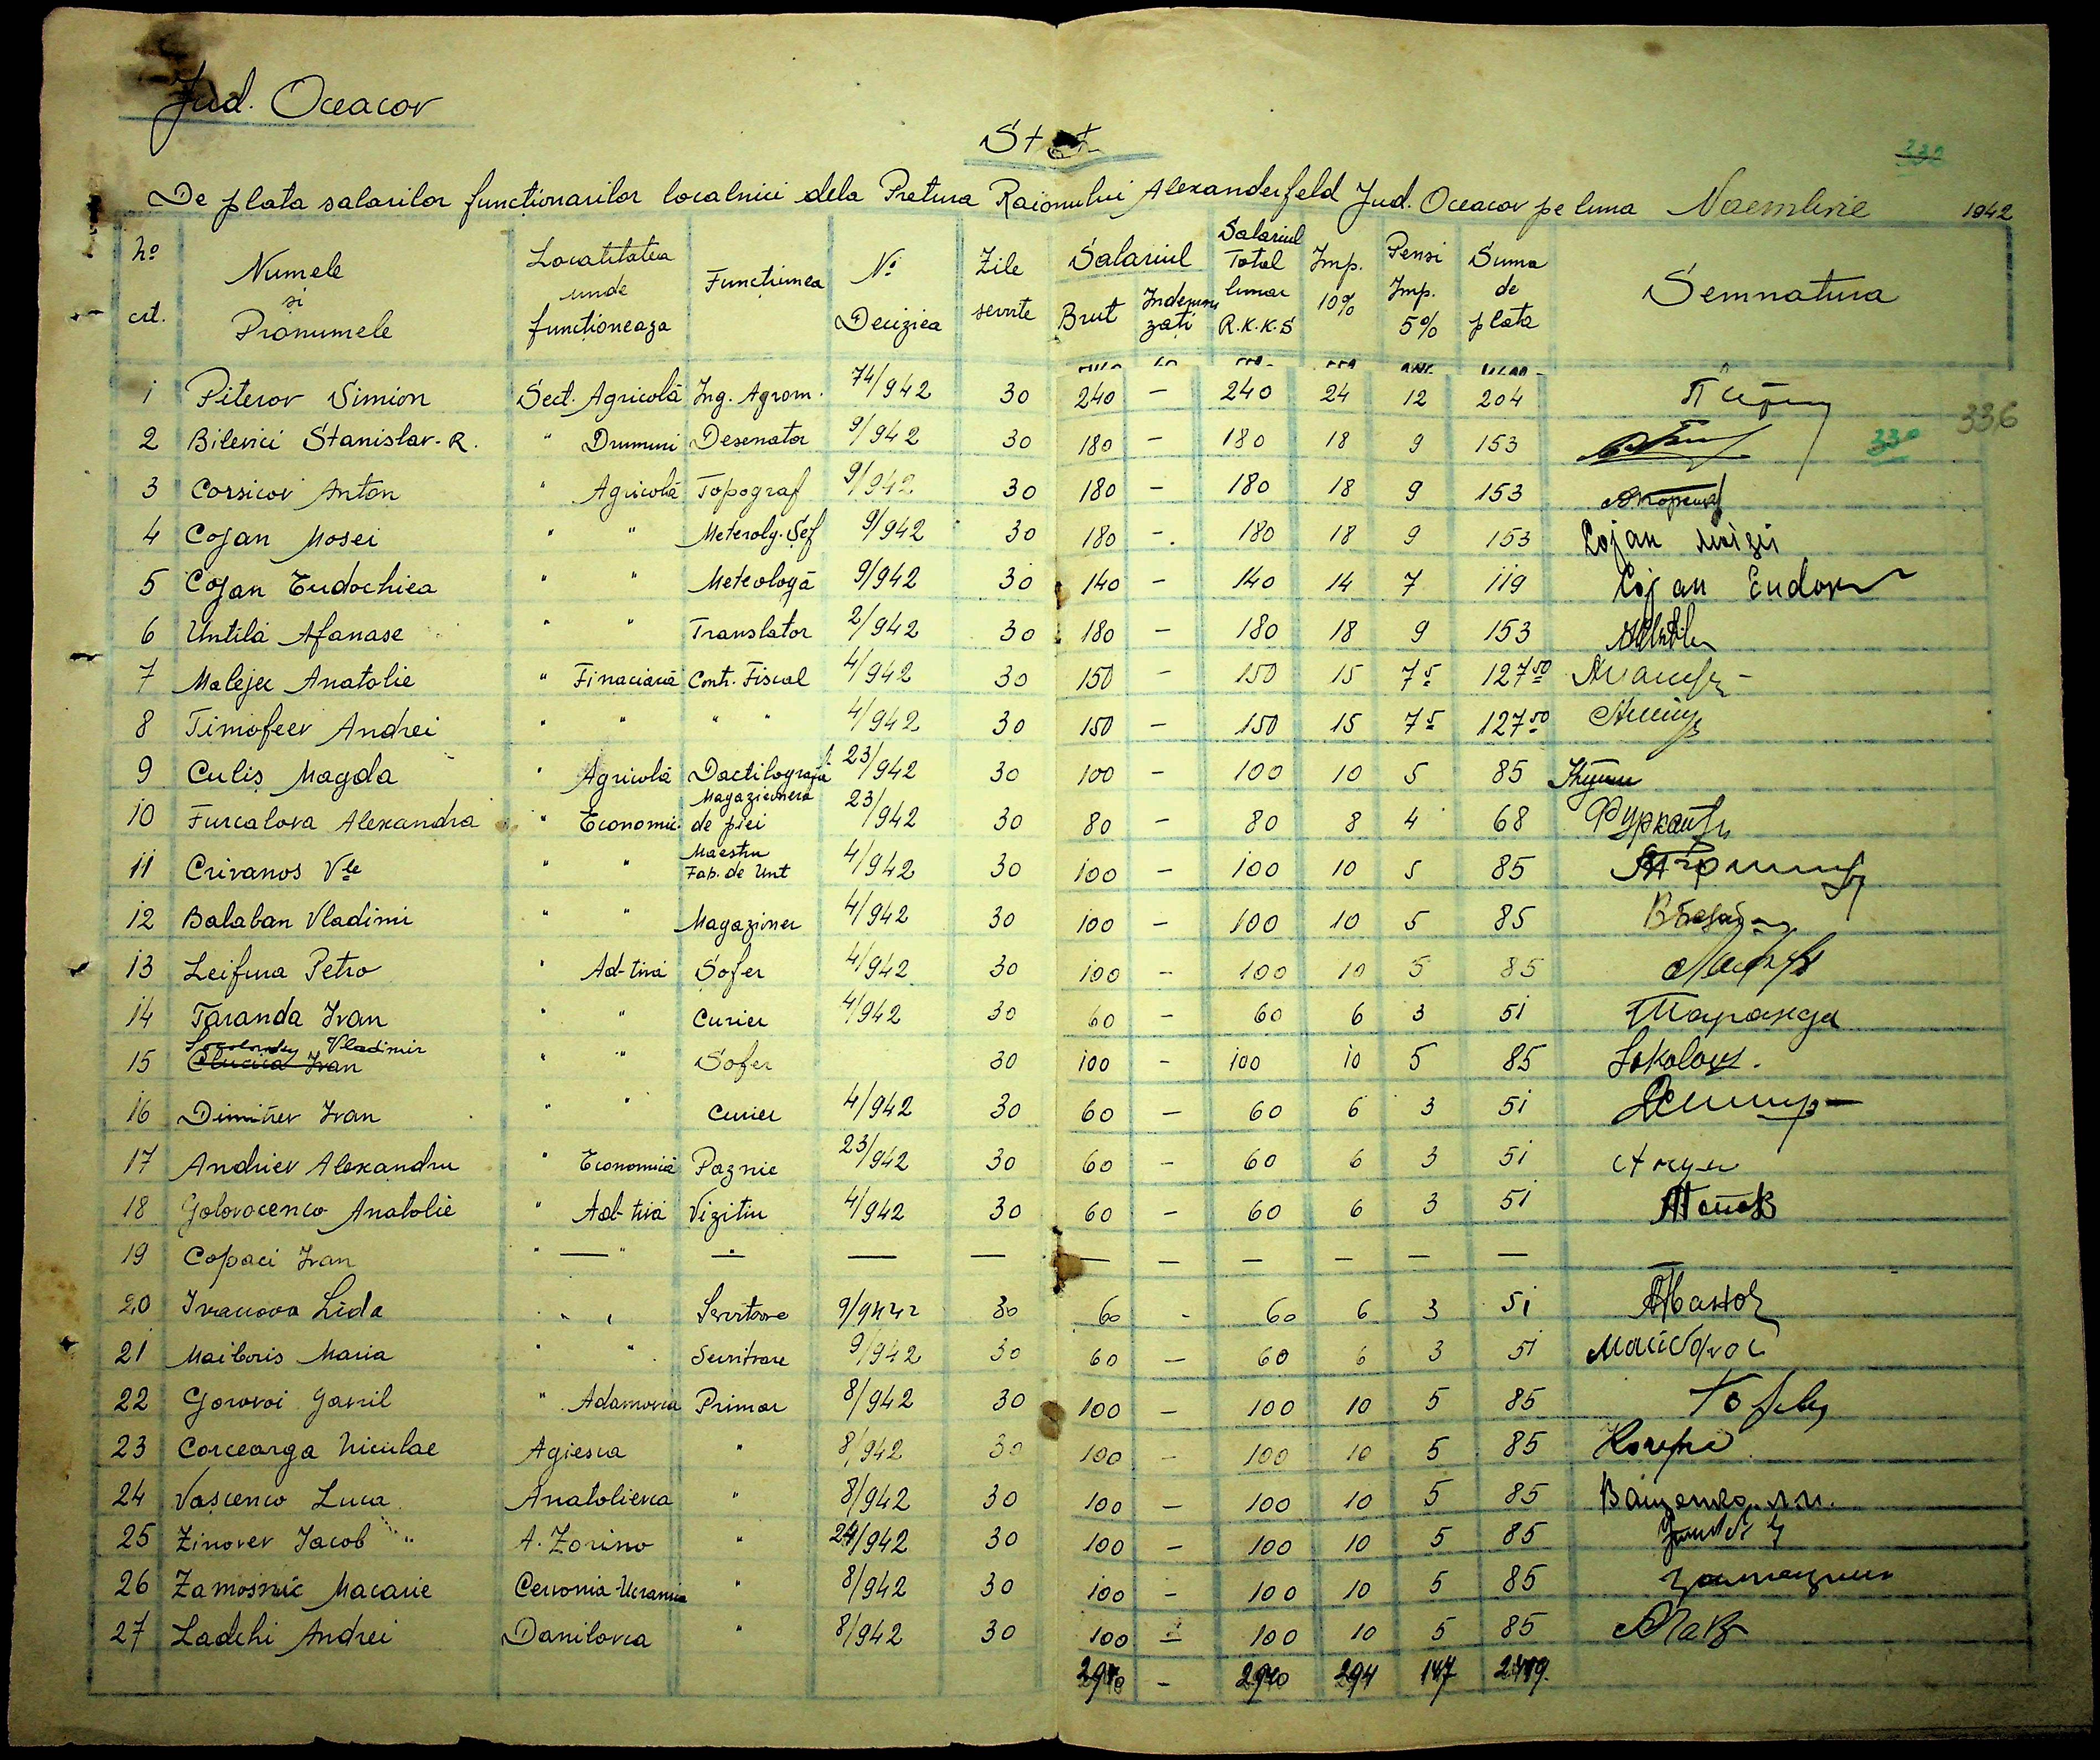 Jud. Oceacov
Stat
330
De plata salarilor funcționarilor localnici dela Pretura Raionului Alexanderfeld Jud. Oceacov pe luna Noembrie 1942
No crt. Numele si Pronumele Localitatea unde funcționeaza Funcțiunea No Deciziea Zile servite Salariul Brut Indemnizati Salariul Total lunar R.K.K.S Imp. 10% Pensi Imp. 5% Suma de plata Semnatura
1 Piterov Simion Sect. Agricolă Ing. Agrom. 74/942 30 240 – 240 24 12 204
336
2 Bilevici Stanislav-R. " Drumuri Desenator 9/942 30 180 – 180 18 9 153
330
3 Corsicov Anton " Agricolă Topograf 9/942 30 180 – 180 18 9 153
4 Cojan Mosei " " Meterolg. Șef 9/942 30 180 – 180 18 9 153 Cojan
5 Cojan Eudochiea " " Meteologă 9/942 30 140 – 140 14 7 119 Cojan Eudoxi
6 Untilă Afanase " " Translator 2/942 30 180 – 180 18 9 153
7 Malejec Anatolie " Finaciară Contr. Fiscal 4/942 30 150 – 150 15 7 5 127 50
8 Timofeev Andrei " " " " 4/942 30 150 – 150 15 7 5 127 50
9 Culiș Magda " Agricolă Dactilografă 23/942 30 100 – 100 10 5 85
10 Furcalova Alexandra " Economic. Magazionera de piei 23/942 30 80 – 80 8 4 68
11 Crivanos Vle " " Maestru Fab. de Unt 4/942 30 100 – 100 10 5 85
12 Balaban Vladimi " " Magaziner 4/942 30 100 – 100 10 5 85
13 Leifura Petro " Ad-tivă Șofer 4/942 30 100 – 100 10 5 85
14 Taranda Ivan " " Curier 4/942 30 60 – 60 6 3 51 Таранда
15 Vladimir Ivan " " Șofer 30 100 – 100 10 5 85 Sokolovs.
16 Dimitrev Ivan " " Curier 4/942 30 60 – 60 6 3 51
17 Andriev Alexandru " Economică Paznic 23/942 30 60 – 60 6 3 51
18 Golovocenco Anatolie " Ad-tivă Vizitiu 4/942 30 60 – 60 6 3 51
19 Copaci Ivan " — " — — — — — — — — — —
20 Ivanova Lida " " Servitoare 9/942 30 60 - 60 6 3 51
21 Maiboris Maria " " Servitoare 9/942 30 60 – 60 6 3 51
22 Gorovoi Gavril " Adamovca Primar 8/942 30 100 – 100 10 5 85
23 Corceaga Niculae Agiesca " 8/942 30 100 – 100 10 5 85
24 Vașcenco Luca Anatolievca " 8/942 30 100 – 100 10 5 85 Ващенко
25 Zinovev Iacob " A. Zorino " 24/942 30 100 – 100 10 5 85
26 Zamosnic Macarie Cervonia Ucrania " 8/942 30 100 – 100 10 5 85
27 Ladchi Andrei Danilovca " 8/942 30 100 – 100 10 5 85
2940 – 2940 294 147 2499